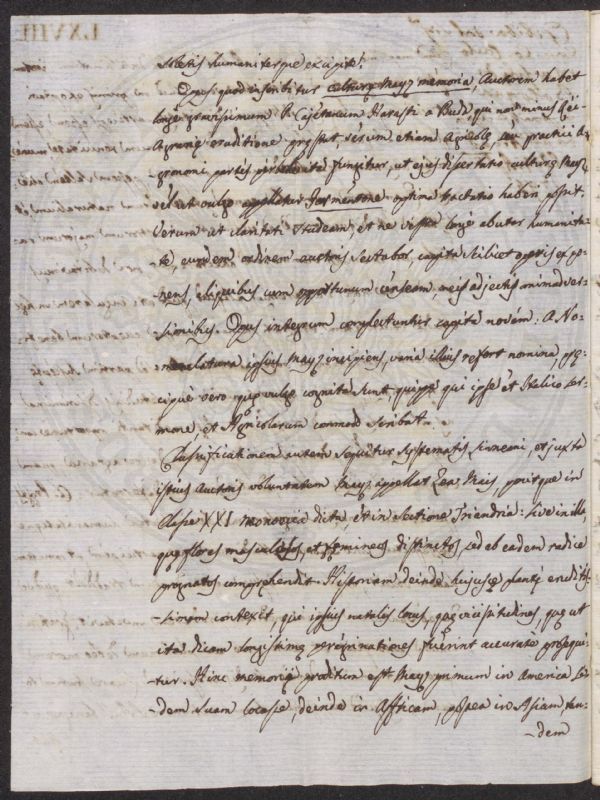 soletis humaniterque excipite.
Opus quod inscribitur culturę Mayz memoria, Auctorem habet
longe gravissimum P. Cajetanum Harasti a Buda, qui non minus Rei
Agrarię eruditione pręstat, verum etiam Agricolę, seu practici A-
gronomi partes fungitur, ut ejus dissertatio culturę Mayz
vel ut vulgo appellatur Formentone optima tractatio haberi possit.
Verum ut claritati studeam, et ne vestra longe abutar humanita-
te, eundem ordinem auctoris sectabor, capita scilicet operis expo-
nens, aliquibus cum opportunum censeam, meis adjectis animadver-
sionibus. Opus integrum complectuntur capita novem: A No-
menclatura ipsius Mayz incipiens, varia illius refert nomina, prę-
cipue vero quę vulgo cognita sunt, quippe qui ipse et Italico ser-
mone, et Agricolarum commodo scribat.
Classificationem autem sequitur systematis Linneani, et juxta
istius Auctoris voluntatem Mayz appellat Zea Mais, ponitque in
Classe XXI monoecia dicta, et in Sectione Triandria: sive in illa,
quę flores masculos, et femineos distinctos sed ab eadem radice
prognatos comprehendit. Historiam deinde hujusce plantę eruditis-
simam contexit, qui ipsius natalis locus, quę vicissitudines, quę ut
ita dicam longissimę peregrinationes fuerint accurate prosequi-
tur. Hinc memorię proditum est Mayz primum in America se-
dem suam locasse, deinde in Affricam, postea in Asiam, tan-
-dem
LXVIII